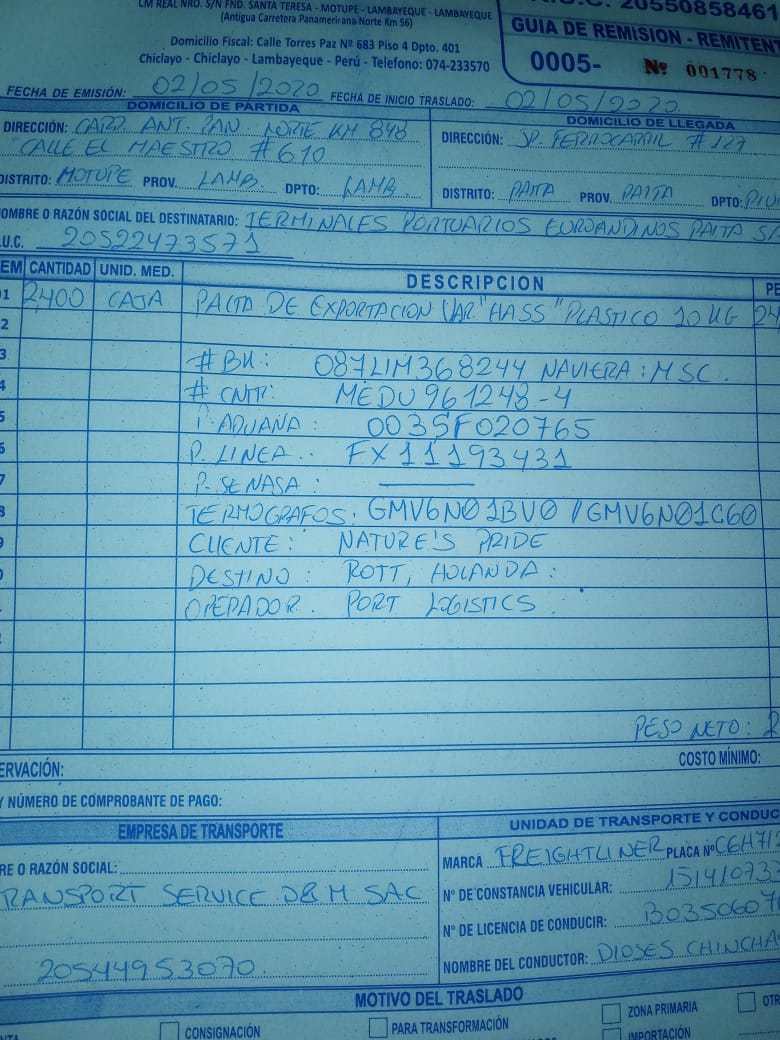 LM REAL NRO. S/N FND. SANTA TERESA - MOTUPE - LAMBAYEQUE - LAMBAYEQUE
(Antigua Carretera Panamericana Norte Km 56)
Domicilio Fiscal: Calle Torres Paz Nº 683 Piso 4 Dpto. 401
Chiclayo - Chiclayo - Lambayeque - Perú - Telefono: 074-233570
20550858461
GUIA DE REMISION - REMITENT
0005- Nº 001778
FECHA DE EMISIÓN: 02/05/2020 FECHA DE INICIO TRASLADO: 02/05/2020
DOMICILIO DE PARTIDA
DIRECCIÓN: CARR. ANT. PAN. NORTE KM 848
CALLE EL MAESTRO #610
DISTRITO: MOTUPE PROV. LAMB. DPTO: LAMB.
DOMICILIO DE LLEGADA
DIRECCIÓN: JR. FERROCARRIL # 127
DISTRITO: PAITA PROV. PAITA DPTO: PIU
NOMBRE O RAZÓN SOCIAL DEL DESTINATARIO: TERMINALES PORTUARIOS EUROANDINOS PAITA S.A
.U.C. 20522473571
EM CANTIDAD UNID. MED. DESCRIPCION PE
1 2,400 CAJA PALTA DE EXPORTACION VAR. "HASS" PLASTICO 10 KG 24
2
3 # BK: 087LIM368244 NAVIERA: MSC.
4 # CNTR: MEDU 961248-4
5 P. ADUANA: 0035F020765
6 P. LINEA.. FX11193431
7 P. SENASA:
8 TERMOGRAFOS: GMV6N01BV0 // GMV6N01C60
9 CLIENTE: NATURE'S PRIDE
DESTINO: ROTT, HOLANDA:
OPERADOR. PORT LOGISTICS.
PESO NETO: 2
ERVACIÓN: COSTO MÍNIMO:
Y NÚMERO DE COMPROBANTE DE PAGO:
EMPRESA DE TRANSPORTE
RE O RAZÓN SOCIAL:
TRANSPORT SERVICE D&M SAC
20544953070.
UNIDAD DE TRANSPORTE Y CONDUC
MARCA FREIGHTLINER PLACA Nº C6H71
Nº DE CONSTANCIA VEHICULAR: 15141073
Nº DE LICENCIA DE CONDUCIR: B0350607
NOMBRE DEL CONDUCTOR: DIOSES CHINCHA
MOTIVO DEL TRASLADO
CONSIGNACIÓN
PARA TRANSFORMACIÓN
ZONA PRIMARIA
OTR
IMPORTACIÓN